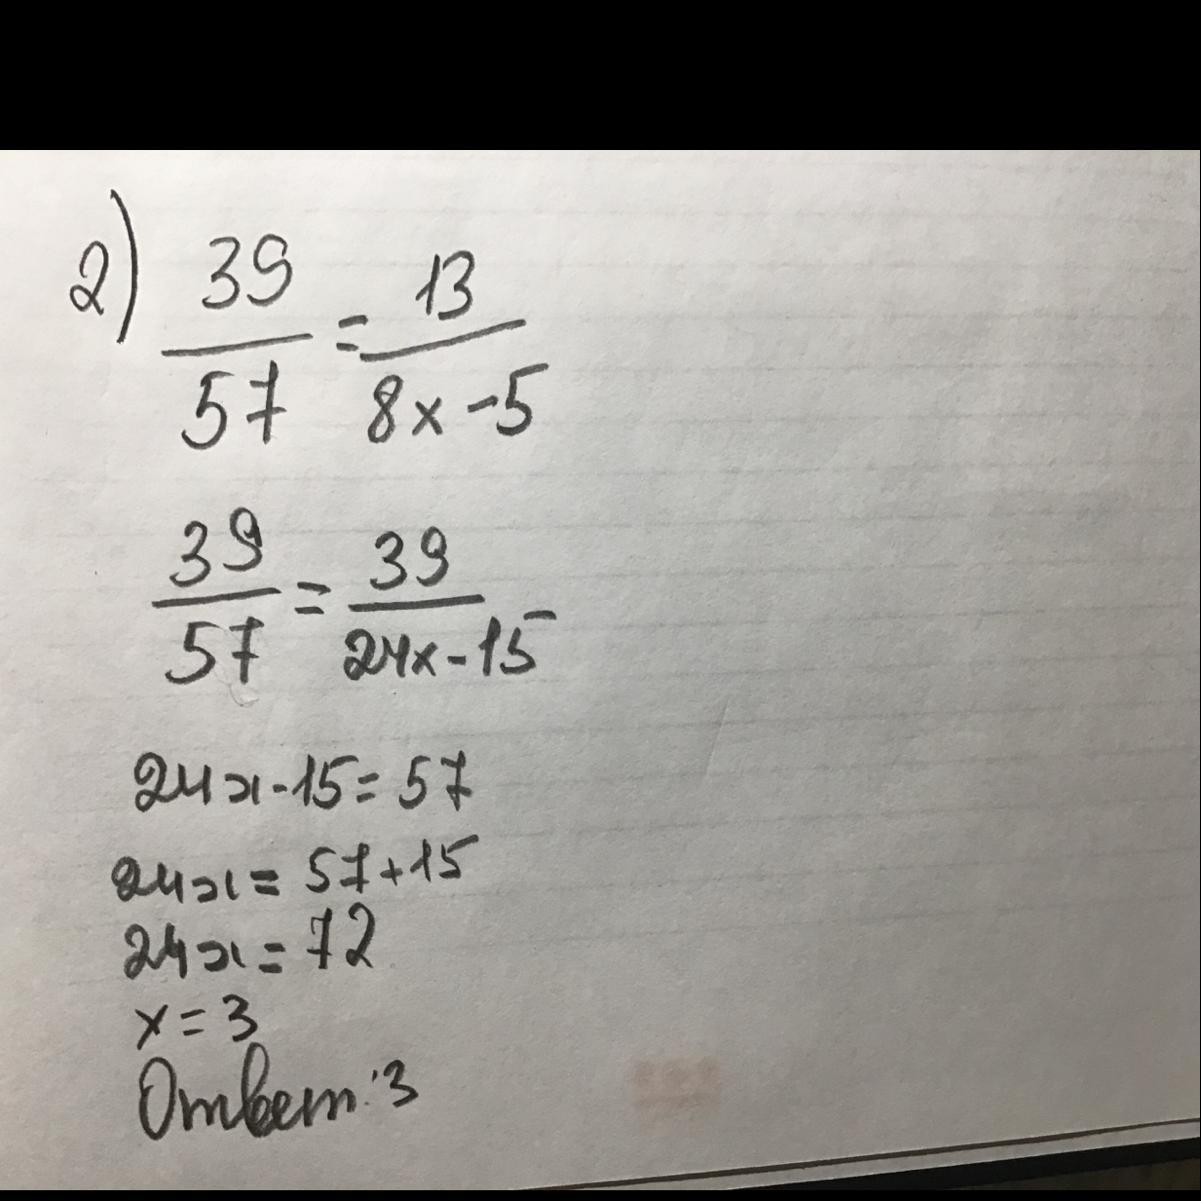 2) 39/57 = 13/(8x-5)
39/57 = 39/(24x-15)
24x-15=57
24x=57+15
24x=72
x=3
Ответ:3